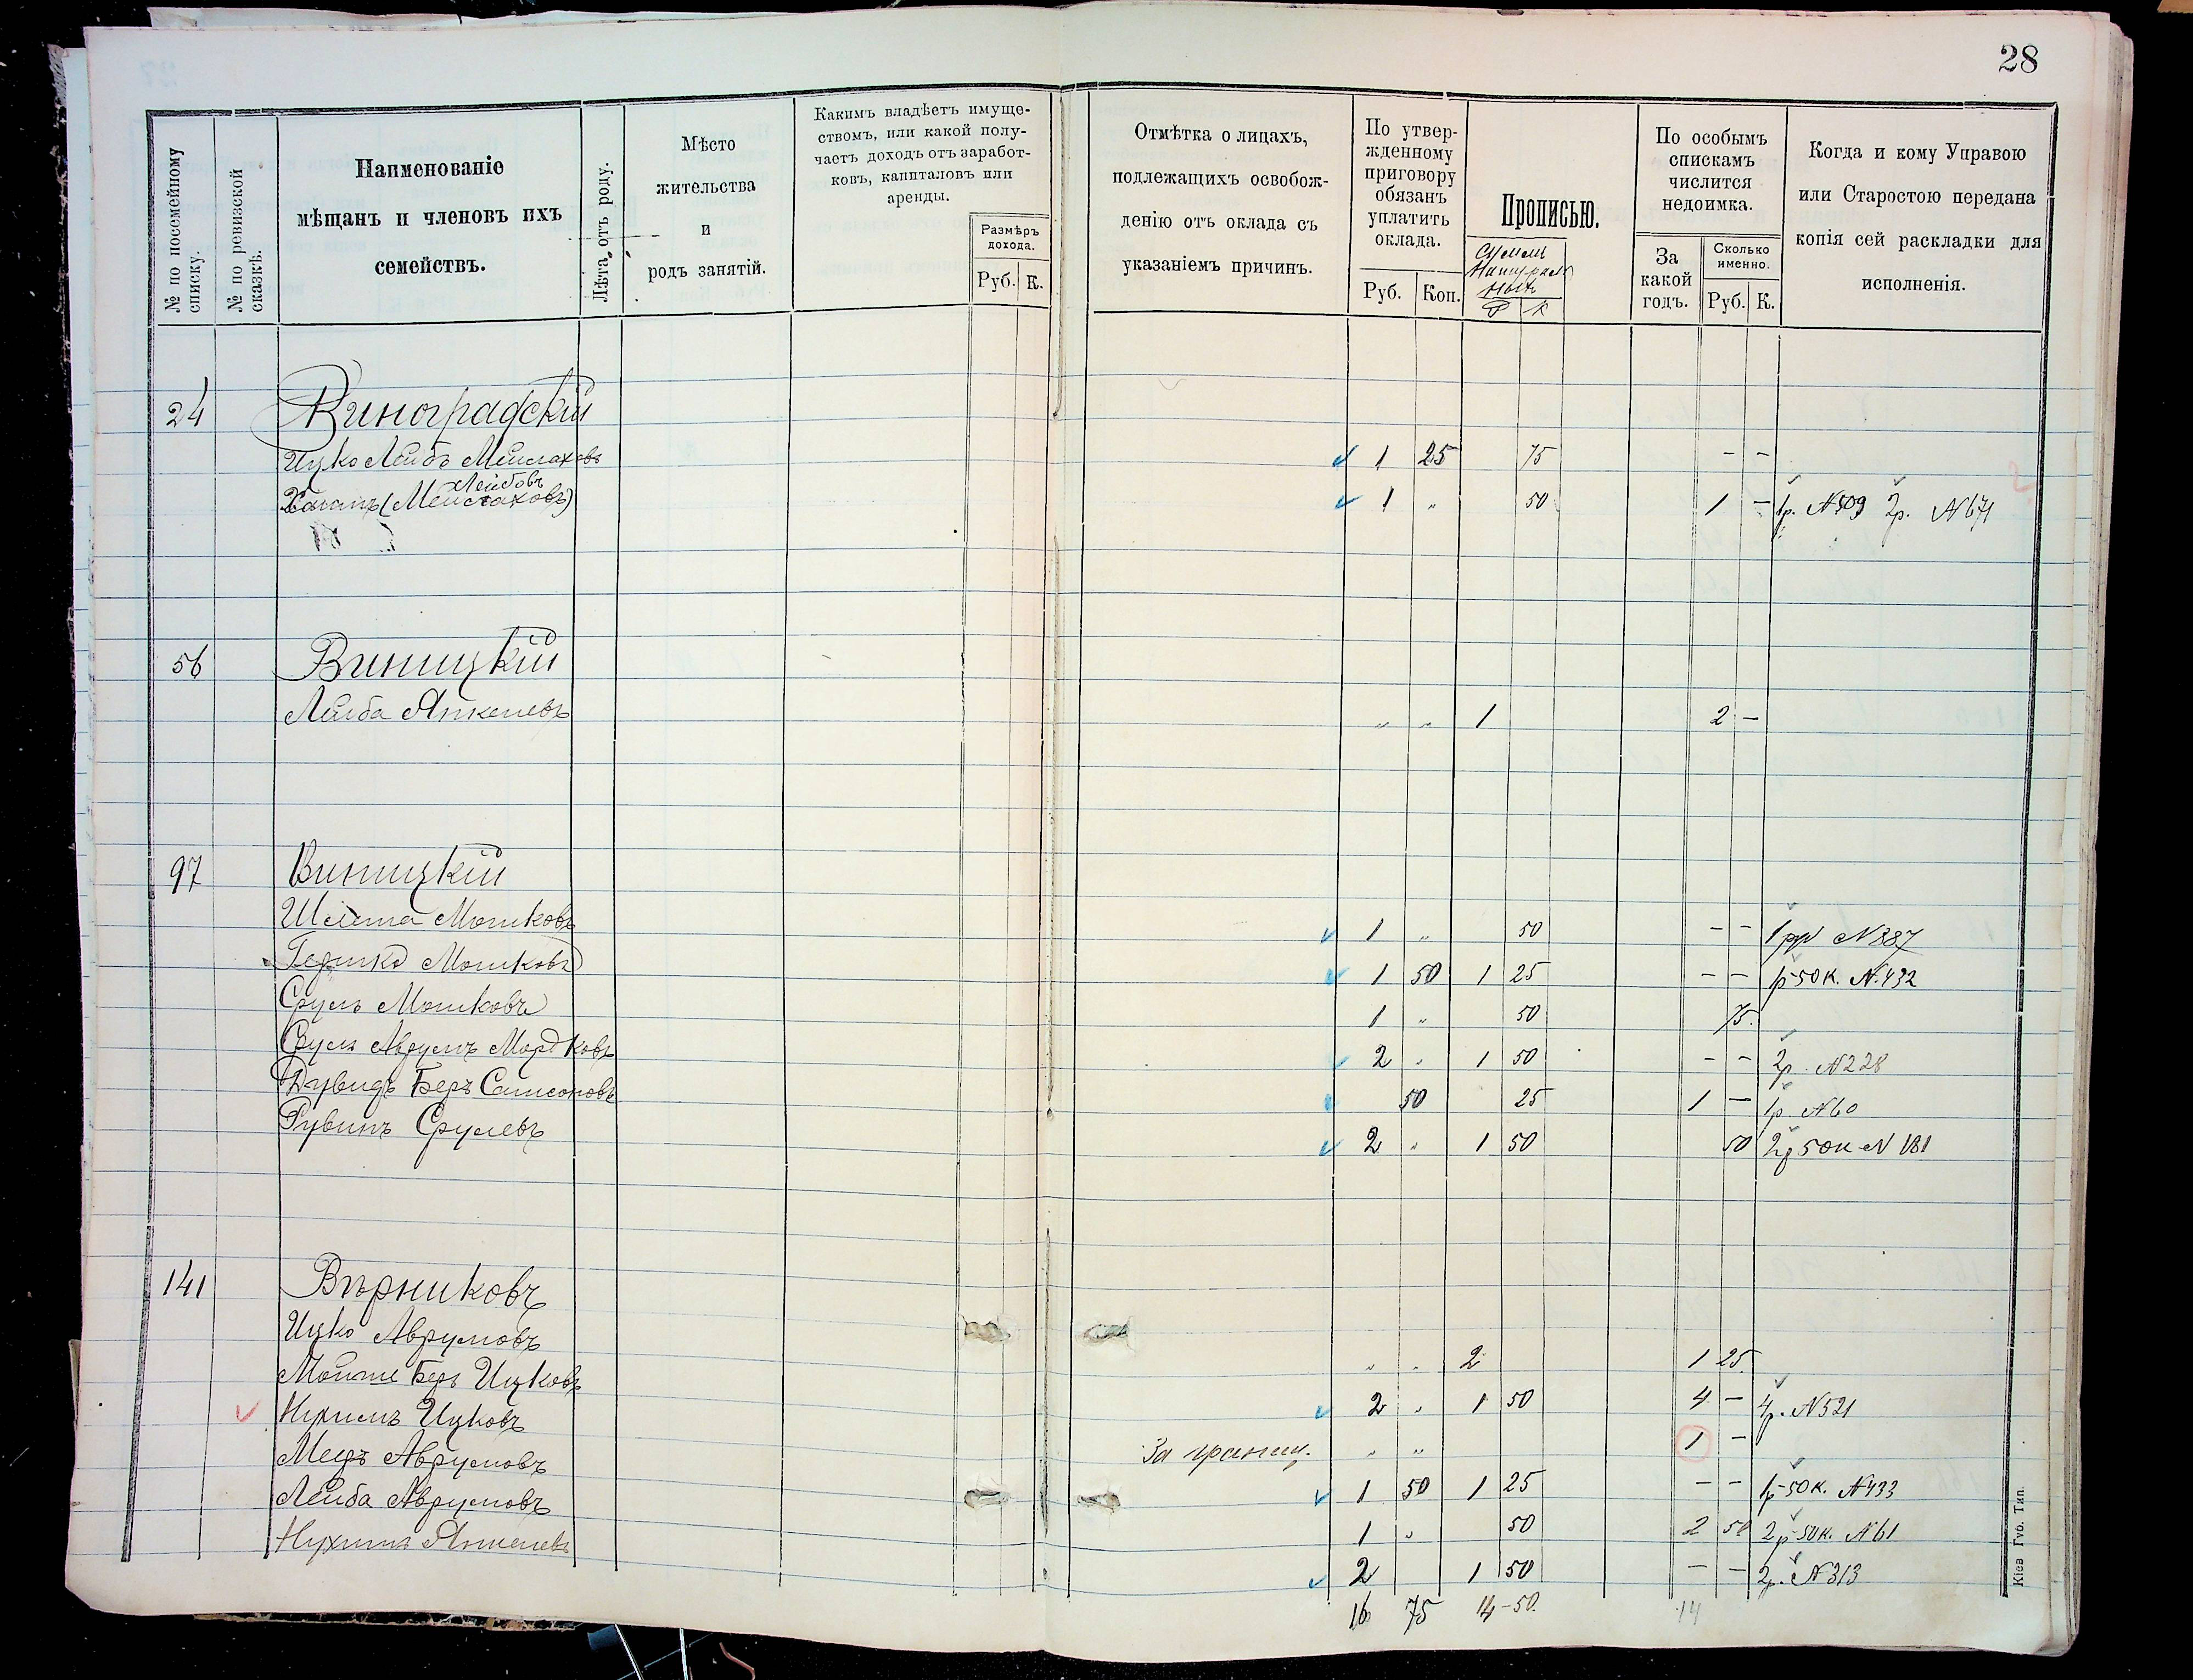 28
№ по посемейному списку.
№ по ревизской сказкѣ.
Наименованіе
мѣщанъ и членовъ ихъ
семействъ.
Лѣта отъ роду.
Мѣсто
жительства
и
родъ занятій.
Какимъ владѣетъ имуще-
ствомъ, или какой полу-
чаетъ доходъ отъ заработ-
ковъ, капиталовъ или
аренды.
Размѣръ
дохода.
Руб. К.
Отмѣтка о лицахъ,
подлежащихъ освобож-
денію отъ оклада съ
указаніемъ причинъ.
По утвер-
жденному
приговору
обязанъ
уплатить
оклада.
Руб. Коп.
Прописью.
Р К
По особымъ
спискамъ
числится
недоимка.
За
какой
годъ.
Сколько
именно.
Руб. К.
Когда и кому Управою
или Старостою передана
копія сей раскладки для
исполненія.
24 Виноградскій
Ицко Лейбъ Мейлаховъ 1 25 75 – –
Лейбовъ
(Мейлаховъ) 1 „ 50 1 – 1р. N509 2р. N671
56 Виницкій
Лейба Янкелевъ „ „ 1 2 –
97 Виницкій
Мошковъ 1 „ 50 – – 1 р N387
Гершко Мошковъ 1 50 1 25 – – 1р 50к. N.432
Сруль Мошковъ 1 „ 50 75.
Сруль Аврумъ Мордковъ 2 „ 1 50 – – 2р. N228
Дувидъ Беръ Самсоновъ 50 25 1 – 1р N60
Рувинъ Срулевъ 2 „ 1 50 50 2р 50к N 181
141 Вѣрниковъ
Ицко Аврумовъ „ „ 2 1 25
Мойше Беръ Ицковъ 2 „ 1 50 4 – 4р. N521
Нухимъ Ицковъ За границ. „ „ 1 –
Мееръ Аврумовъ 1 50 1 25 – – 1р-50к. N433
Лейба Аврумовъ 1 „ 50 2 50 2р 50к. N61
Нухимъ Янкелевъ 2 1 50 – – 2р. N313
16 75 14-50. 14
Кіев Губ. Тип.